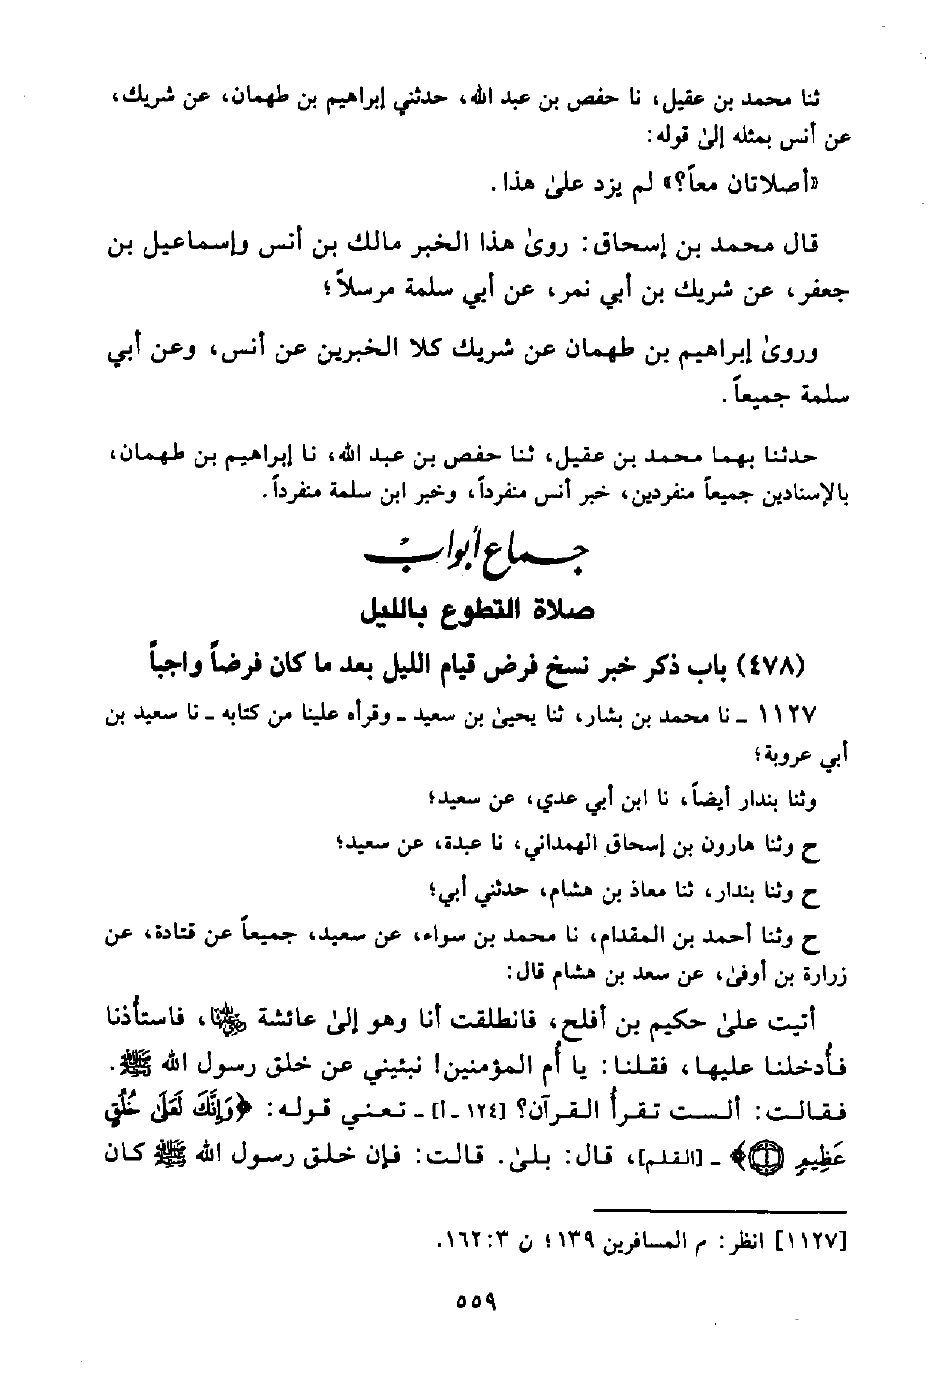 ثنا محمد بن عقيل، نا حفص بن عبد الله، حدثني إبراهيم بن طهمان، عن شريك،
عن أنس بمثله إلىٰ قوله:
«أصلاتان معاً؟» لم يزد علىٰ هذا.
قال محمد بن إسحاق: روىٰ هذا الخبر مالك بن أنس وإسماعيل بن
جعفر، عن شريك بن أبي نمر، عن أبي سلمة مرسلاً؛
وروىٰ إبراهيم بن طهمان عن شريك كلا الخبرين عن أنس، وعن أبي
سلمة جميعاً.
حدثنا بهما محمد بن عقيل، ثنا حفص بن عبد الله، نا إبراهيم بن طهمان،
بالإسنادين جميعاً منفردين، خبر أنس منفرداً، وخبر ابن سلمة منفرداً.
جماع أبواب
صلاة التطوع بالليل
(٤٧٨) باب ذكر خبر نسخ فرض قيام الليل بعد ما كان فرضاً واجباً
١١٢٧ ـ نا محمد بن بشار، ثنا يحيىٰ بن سعيد ـ وقرأه علينا من كتابه ـ نا سعيد بن
أبي عروبة؛
وثنا بندار أيضاً، نا ابن أبي عدي، عن سعيد؛
ح وثنا هارون بن إسحاق الهمداني، نا عبدة، عن سعيد؛
ح وثنا بندار، ثنا معاذ بن هشام، حدثني أبي؛
ح وثنا أحمد بن المقدام، نا محمد بن سواء، عن سعيد، جميعاً عن قتادة، عن
زرارة بن أوفىٰ، عن سعد بن هشام قال:
أتيت علىٰ حكيم بن أفلح، فانطلقت أنا وهو إلىٰ عائشة رضي الله عنها، فاستأذنا
فأدخلنا عليها، فقلنا: يا أم المؤمنين! نبئيني عن خلق رسول الله ﷺ.
فقالت: ألست تقرأ القرآن؟ [١٢٤ ـ أ] ـ تعني قوله: ﴿وَإِنَّكَ لَعَلَىٰ خُلُقٍ
عَظِيمٍ ﴾ ـ [القلم]، قال: بلىٰ. قالت: فإن خلق رسول الله ﷺ كان
[١١٢٧] انظر: م المسافرين ١٣٩؛ ن ٣: ١٦٢.
٥٥٩